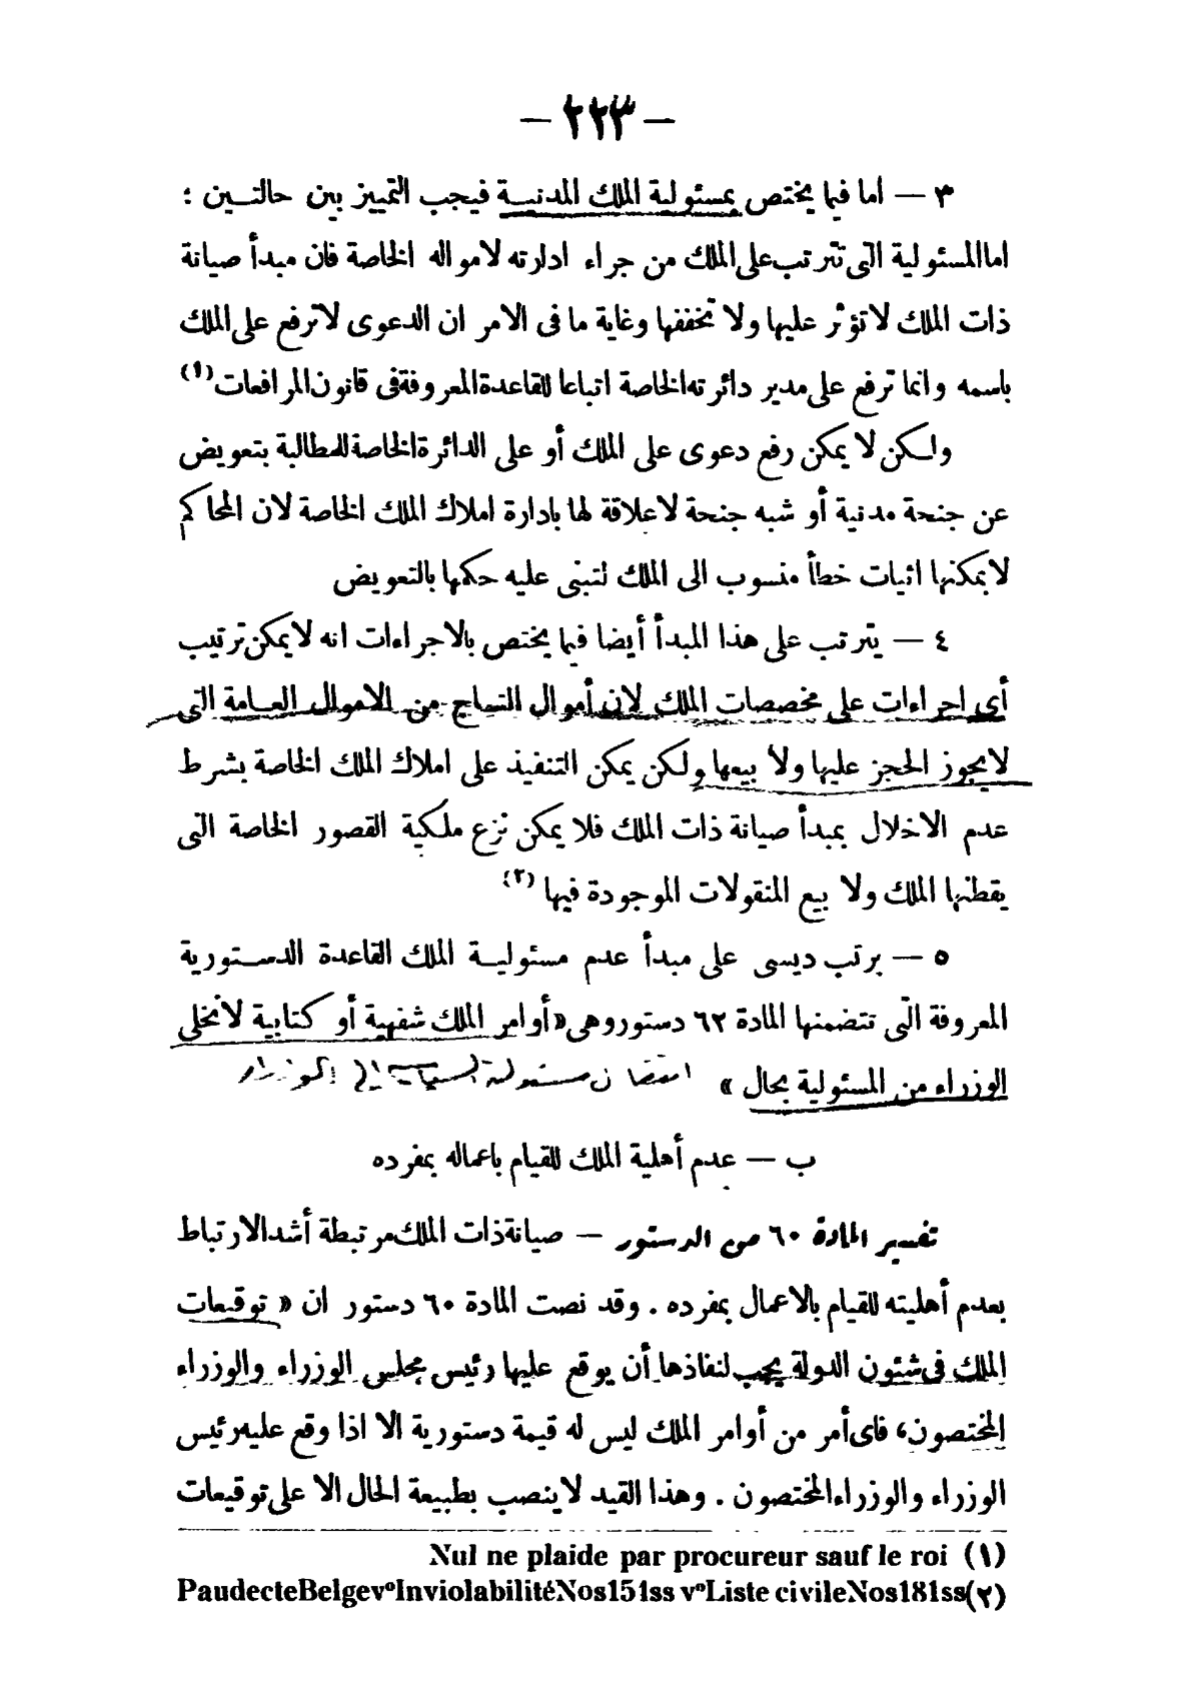 — ٢٢٣ —
٣ — اما فيما يختص بمسئولية الملك المدنية فيجب التمييز بين حالتين :
اما المسئولية التى تترتب على الملك من جراء ادارته لامواله الخاصة فان مبدأ صيانة
ذات الملك لا تؤثر عليها ولا تخففها وغاية ما فى الامر ان الدعوى لا ترفع على الملك
باسمه وانما ترفع على مدير دائرته الخاصة اتباعا للقاعدة المعروفة فى قانون المرافعات (١)
ولكن لا يمكن رفع دعوى على الملك أو على الدائرة الخاصة للمطالبة بتعويض
عن جنحة مدنية أو شبه جنحة لاعلاقة لها بادارة املاك الملك الخاصة لان المحاكم
لايمكنها اثبات خطأ منسوب الى الملك لتبنى عليه حكمها بالتعويض
٤ — يترتب على هذا المبدأ أيضا فيما يختص بالاجراءات انه لايمكن ترتيب
أى اجراءات على مخصصات الملك لان أموال التاج من الاموال العامة التى
لايجوز الحجز عليها ولا بيعها ولكن يمكن التنفيذ على املاك الملك الخاصة بشرط
عدم الاخلال بمبدأ صيانة ذات الملك فلا يمكن نزع ملكية القصور الخاصة التى
يقطنها الملك ولا بيع المنقولات الموجودة فيها (٢)
٥ — يرتب ديسى على مبدأ عدم مسئولية الملك القاعدة الدستورية
المعروفة التى تتضمنها المادة ٦٢ دستور وهى «أوامر الملك شفهية أو كتابية لاتخلى
الوزراء من المسئولية بحال »
ب — عدم أهلية الملك للقيام باعماله بمفرده
تفسير المادة ٦٠ من الدستور — صيانة ذات الملك مرتبطة أشد الارتباط
بعدم أهليته للقيام بالاعمال بمفرده . وقد نصت المادة ٦٠ دستور ان « توقيعات
الملك فى شئون الدولة يجب لنفاذها أن يوقع عليها رئيس مجلس الوزراء والوزراء
المختصون، فاى أمر من أوامر الملك ليس له قيمة دستورية الا اذا وقع عليه رئيس
الوزراء والوزراء المختصون . وهذا القيد لا ينصب بطبيعة الحال الا على توقيعات
(١) Nul ne plaide par procureur sauf le roi
(٢) PaudecteBelgevºInviolabilitéNos151ss vºListe civileNos181ss